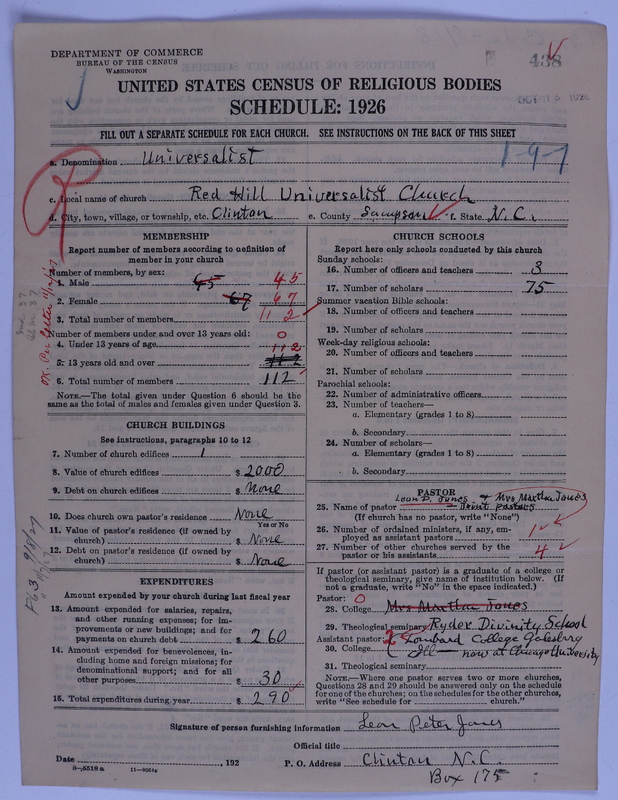 DEPARTMENT OF COMMERCE
BUREAU OF THE CENSUS
WASHINGTON
438
OCT
UNITED STATES CENSUS OF RELIGIOUS BODIES
SCHEDULE: 1926
FILL OUT A SEPARATE SCHEDULE FOR EACH CHURCH. SEE INSTRUCTIONS ON THE BACK OF THIS SHEET
a. Denomination Universalist
1-9-1
c. Local name of church Red Hill Universalist Church
d. City, town, village, or township, etc. Clinton e. County Sampson f. State N.C.
MEMBERSHIP
Report number of members according to definition of
member in your church
Number of members, by sex:
1. Male 45 45
2. Female 67 67
3. Total number of members 112
Number of members under and over 13 years old: 0
4. Under 13 years of age 112
5. 13 years old and over 112
6. Total number of members 112
NOTE.—The total given under Question 6 should be
same as the total of males and females given under Question 3.
CHURCH BUILDINGS
See instructions, paragraphs 10 to 12
7. Number of church edifices 1
8. Value of church edifices $ 2000
9. Debt on church edifices $ None
10. Does church own pastor's residence None
Yes or No
11. Value of pastor's residence (if owned by
church) $ None
12. Debt on pastor's residence (if owned by
church) $ None
EXPENDITURES
Amount expended by your church during last fiscal year
13. Amount expended for salaries, repairs,
and other running expenses; for im-
provements or new buildings; and for
payments on church debt $ 260
14. Amount expended for benevolences, in-
cluding home and foreign missions; for
denominational support; and for all
other purposes $ 30
15. Total expenditures during year $ 290
CHURCH SCHOOLS
Report here only schools conducted by this church
Sunday schools:
16. Number of officers and teachers 3
17. Number of scholars 75
Summer vacation Bible schools:
18. Number of officers and teachers
19. Number of scholars
Week-day religious schools:
20. Number of officers and teachers
21. Number of scholars
Parochial schools:
22. Number of administrative officers
23. Number of teachers—
a. Elementary (grades 1 to 8)
b. Secondary
24. Number of scholars—
a. Elementary (grades 1 to 8)
b. Secondary
PASTOR
Leon P. Jones & Mrs Martha Jones
25. Name of pastor Joint pastors
(If church has no pastor, write "None")
26. Number of ordained ministers, if any, em-
ployed as assistant pastors 1
27. Number of other churches served by the
pastor or his assistants 4
If pastor (or assistant pastor) is a graduate of a college or
theological seminary, give name of institution below. (If
not a graduate, write "No" in the space indicated.)
Pastor: 0
28. College Mrs Martha Jones
29. Theological seminary Ryder Divinity School
Assistant pastor: 2 Lombard College Galesburg
30. College Ill — now at Chicago University
31. Theological seminary
NOTE.—Where one pastor serves two or more churches,
Questions 28 and 29 should be answered only on the schedule
for one of the churches; on the schedules for the other churches,
write "See schedule for church."
Signature of person furnishing information Leon Peter Jones
Official title
Date , 192 P. O. Address Clinton N.C.
8—5518a 11—9054g Box 175